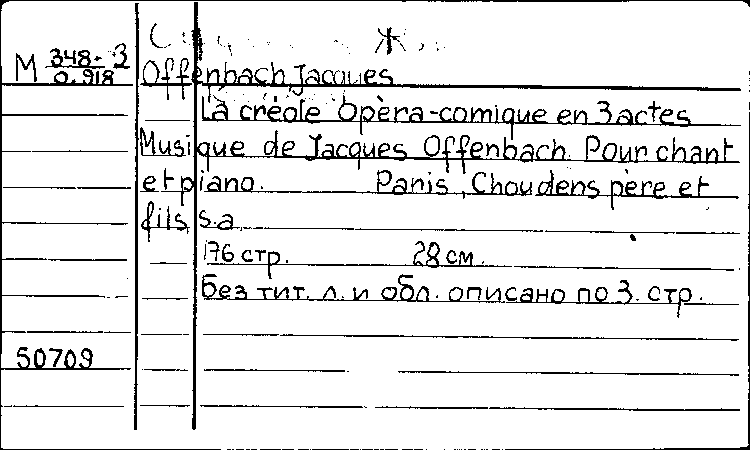 M 348-3
0.918
Offenbach Jacques
La créole Opèra-comique en 3 actes
Musique de Jacques Offenbach. Pour chant
et piano. Paris, Choudens père et
fils, s.a.
176 стр. 28 см.
Без тит. л. и обл. описано по 3. стр.
50709